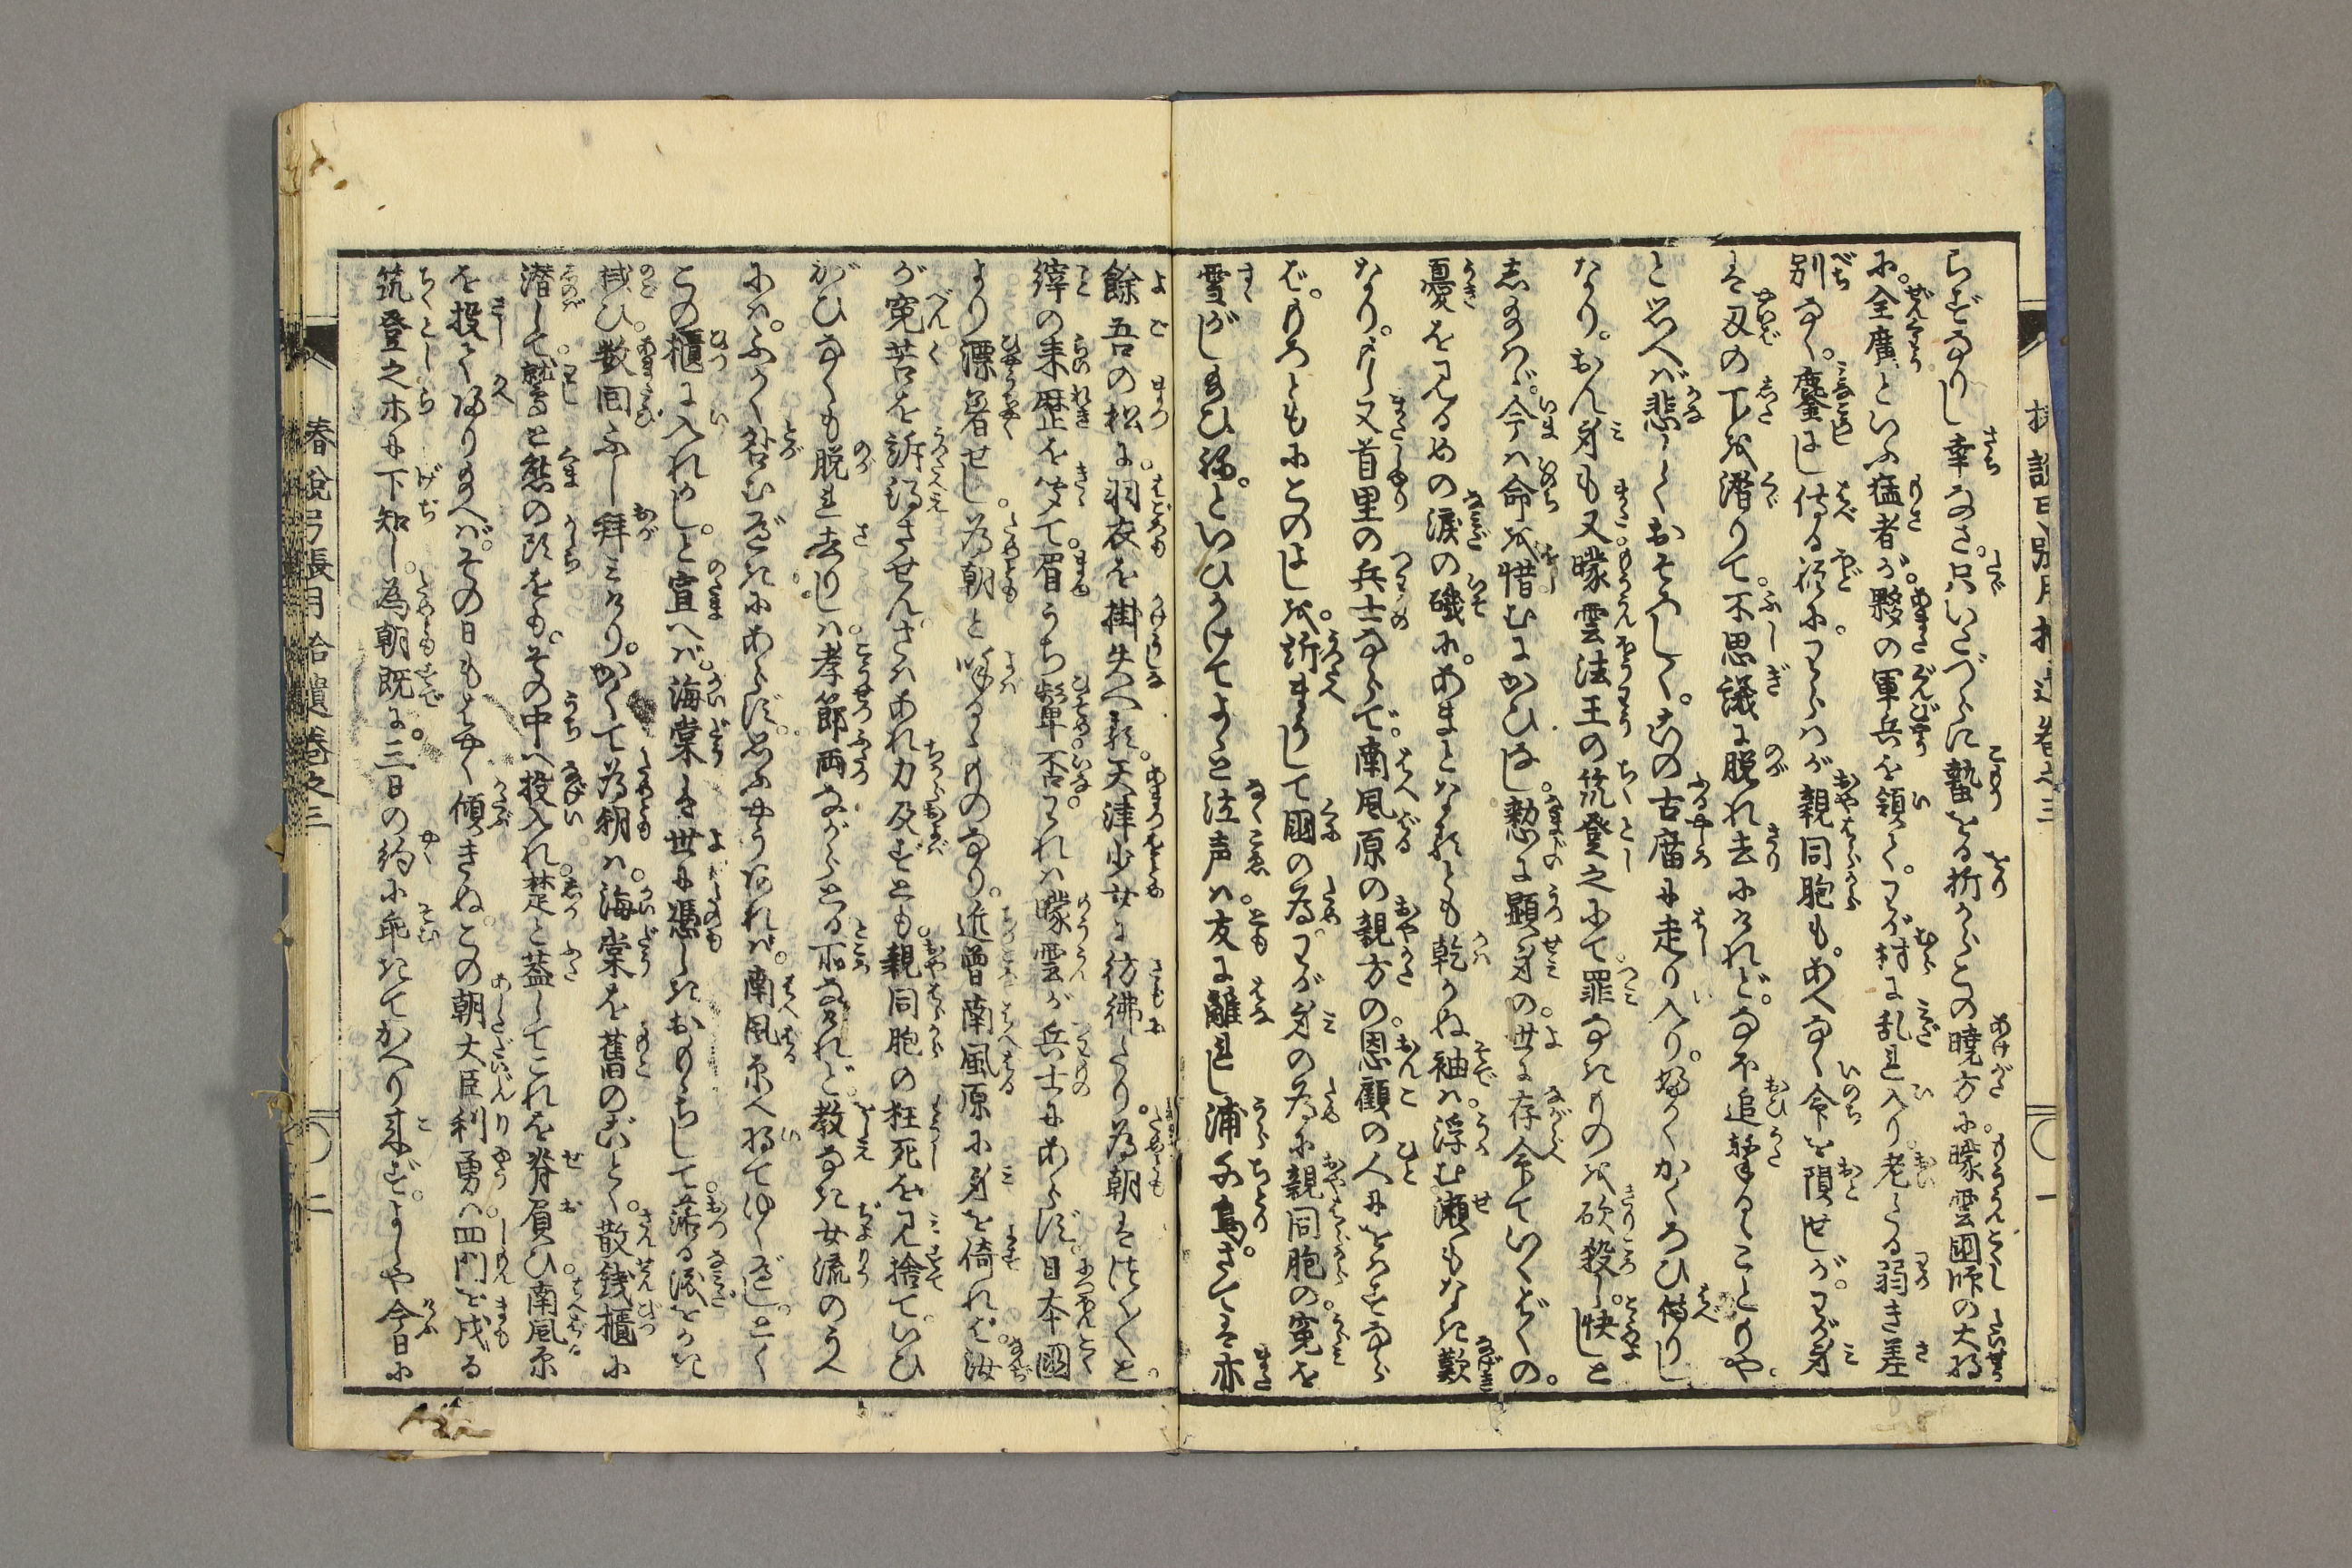 らずなりし幸なさ。只いたづらに蟄をる折から、この曉方に。曚雲國師の大将
に。全廣といふ猛者が。夥の軍兵を領て。わが村に乱れ入り。老たる弱き差
別なく。鏖にし侍る程に。わらはが親同胞も。あへなく命を隕せしが。わが身
は刄の下を潜りて。不思議に脱れ去にけれど。なほ追撃るゝこともや
と思へば悲しくおそろしく。この古廟に走り入り。如くかくろひ侍りし
なり。おん身も又曚雲法王の筑登之にて。罪なきものを砍殺し。快しと
し給はゞ。今は命を惜むにかひなし。憖に顕身の。世に存命ていくばくの。
憂をみるめの涙の磯に。あまとなれども乾かぬ袖は。浮む瀬もなき歎
なり。もし又首里の兵士ならで。南風原の親方の。恩顧の人にをはさなら
ば。もろともにこのよしを。訴まうして國の為。わが身の為に親同胞の。寃を
雪がし給ひね。といひかけてよゝと泣声は。友に離れし浦千鳥。さては亦
餘吾の松に。羽衣を掛失へる。天津少女に彷彿たり。為朝はつく〴〵と。
縡の来歴を聞て。眉うち顰。否。われは曚雲が兵士にあらず。日本國
より漂着せし。為朝と呼るゝものなり。近曽南風原に身を倚れば。汝
が寃苦を訴得させん。さはあれ力及ばずとも。親同胞の枉死を見捨て。いひ
がひなくも脱れ去りしは。孝節両ながらとる所なけれど。教なき女流のうへ
には。ふかく咎むべきにあらず。思ふやうあれば。南風原へ将てゆくべし。とく
この櫃に入れかし。と宣へば。海棠しき世に憑しきおもゝちして。落る涙をかき
拭ひ。数回ふし拝みけり。かくて為朝は。海棠を舊のごとく。散銭櫃に
潜して。鷲と熊の頭をも。その中へ投入れ。楚と蓋してこれを脊負ひ。南風原
を投て帰り給へば。その日もはやく傾きぬ。この朝大臣利勇は。四門を戍る
筑登之ホに下知し。為朝既に。三日の約に乖きてかへり来ず。よしや今日に
椿説弓張月拾遺巻之三
一
椿説弓張月拾遺巻之三
二